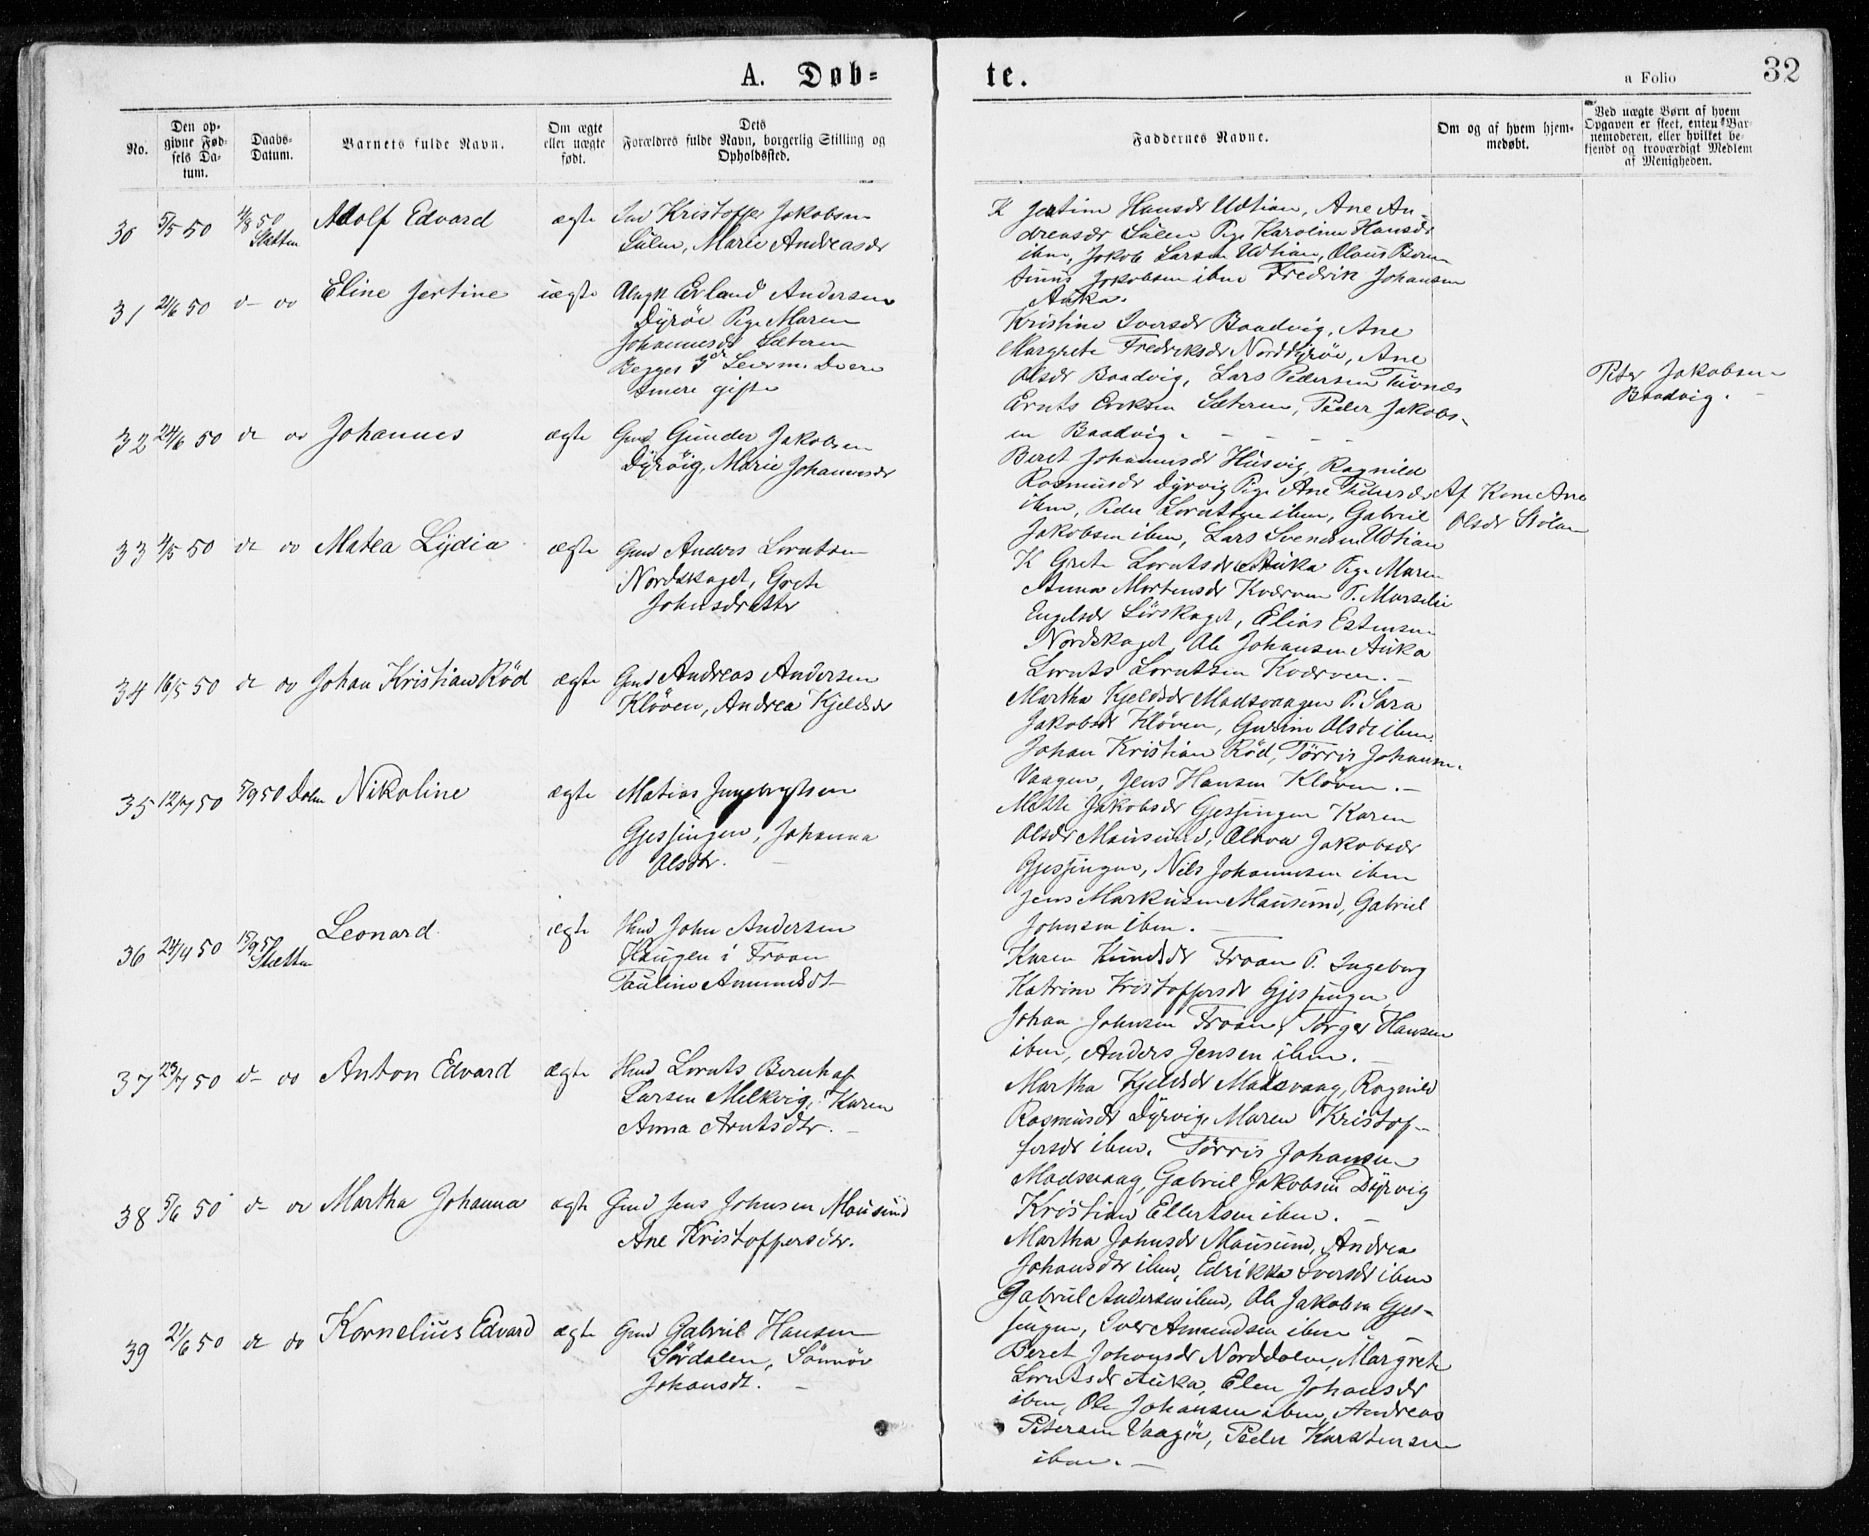 A. Døb=
te.
a Folio
32
No.
Den op-
givne Fød-
sels Da-
tum.
Daabs-
Datum.
Barnets fulde Navn.
Om ægte
eller uægte
født.
Dets
Forældres fulde Navn, borgerlig Stilling og
Opholdssted.
Faddernes Navne.
Om og af hvem hjem-
medøbt.
Ved uægte Børn af hvem
Opgaven er skeet, enten Bar-
nemoderen, eller hvilket be-
kjendt og troværdigt Medlem
af Menigheden.
30 5/5 50 4/8 50 Sletten Adolf Edvard ægte Ind Kristoffer Jakobsen
Sulen, Marie Andreasdr
K Jertine Hansdr Udtian, Ane An-
dreasdr Sulen Pige Karoline Hansdr
ibm, Jakob Larsen Udtian, Olaus Beren
tinus Jakobsen ibm Fredrik Johansen
Auka.
31 21/6 50 d- oo Eline Jertine uægte Ungk Erland Andersen
Dyrøe Pige Maren
Johannesdr Sæteren
Begges
gifte
Kristine Iversdr Baadvig, Ane
Margrete Fredriksdr Norddyrøe, Ane
Olsdr Baadvig, Lars Pedersen Tuvnes
Ernts Eriksen Sæteren, Peder Jakobs-
en Baadvig.
Peter Jakobsen
Baadvig.
32 24/6 50 d oo Johannes ægte Gmd Gunder Jakobsen
Dyrøig, Marie Johannesdr
Beret Johannesdr Husvig, Ragnild
Rasmusdr Dyrvig Pige Ane Pedersdr
ibm, Peder Lorntsen ibm, Gabriel
Jakobsen ibm, Lars Svendsen Udtian
Af Kone Ane
Olsdr Stølan
33 4/5 50 d oo Matea Lydia ægte Gmd Anders Lorntsen
Nordskaget, Grete
Johnsdratter
K Grete Lorntsdr Auka Pige Maren
Anna Mortensdr Kværven P. Marselie
Engelsdr Sørskaget, Elias Estensen
Nordskaget, Ole Johansen Auka
Lornts Lorntsen Kværven.-
34 16/5 50 d oo Johan Kristian Rød ægte Gmd Andreas Andersen
Kløven, Andrea Kjeldsdr
Martha Kjeldsdr Madsvaagen P. Sara
Jakobsdr Kløven, Gurine Olsdr ibm.
Johan Kristian Rød, Tørris Johansen.
Vaagen, Jens Hansen Kløven.-
35 12/7 50 5/9 50 Dolm Nikoline ægte Matias Ingebrigtsen
Gjessingen, Johanna
Olsdtr.
Mette Jakobsdr Gjessingen Karen
Olsdr Mausund, Olava Jakobsdr
Gjessingen, Nils Johannesen ibm
Jens Markusen Mausund, Gabriel
Johnsen ibm.
36 24/4 50 15/9 50 Sletten Leonard ægte Hmd John Andersen
Haugen i Froan
Pauline Amundsdt
Karen Knudsdr Froan P. Ingeborg
Katrine Kristoffersdr Gjessingen,
Johan Johnsen Froan, Torger Hansen
ibm, Anders Jensen ibm.
37 23/7 50 d- oo Anton Edvard ægte Hmd Lornts Bernhaf
Larsen Melkvig, Karen
Anna Arntsdtr.
Martha Kjeldsdr Madsvaag, Ragnild
Rasmusdr Dyrvig, Maren Kristof-
fersdr ibm. Tørris Johansen
Madsvaag, Gabriel Jakobsen Dyrvig
Kristian Ellertsen ibm.
38 5/6 50 d- oo Martha Johanna ægte Gmd Jens Johnsen Mausund
Ane Kristoffersdr.
Martha Johnsdr Mausund, Andrea
Johansdr ibm, Edrikka Iversdr ibm
Gabriel Andersen ibm, Ole Jakobsen Gjes-
singen, Iver Amundsen ibm
39 21/6 50 d oo Kornelius Edvard ægte Gmd Gabriel Hansen
Sørdalen, Sønnøv
Johansdt.
Beret Johansdr Norddolm, Margrete
Lorntsdr Auka, Elen Johansdr
ibm, Ole Johansen ibm, Andreas
Petersen Vaagøe, Peder Karstensen
ibm.